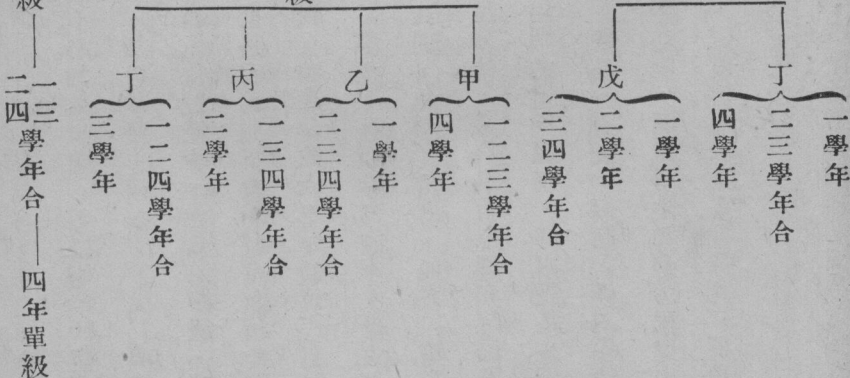 丁
一學年
二三學年合
四學年
戊
一學年
二學年
三四學年合
級
甲
一二三學年合
四學年
乙
一學年
二三四學年合
丙
一三四學年合
二學年
丁
一二四學年合
三學年
級
一三
二四
學年合
四年單級